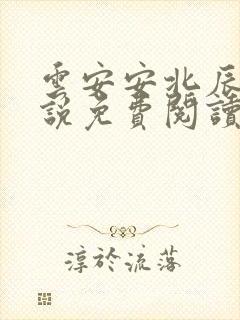 雲安安北辰
說免費閱讀
淳於流落